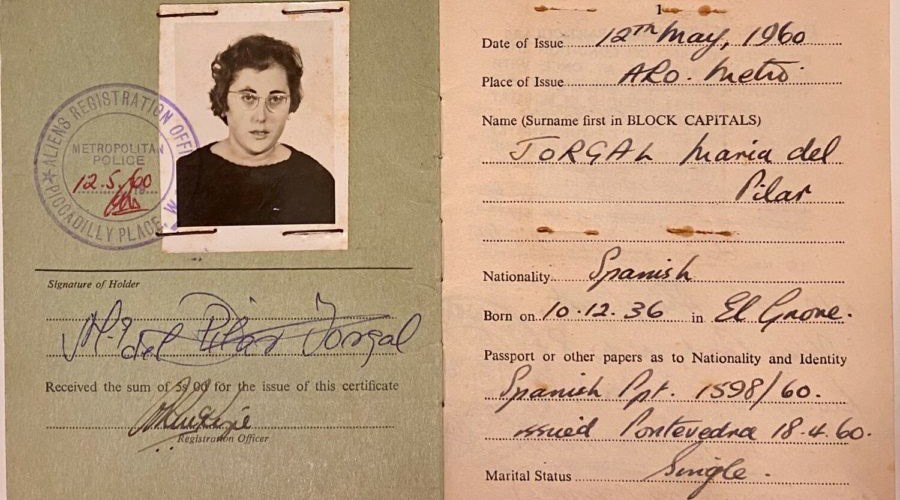 ALIENS REGISTRATION OFFI
METROPOLITAN
POLICE
12.5.60
PICCADILLY PLACE, W
Signature of Holder
M.ª del Pilar Jorgal
Received the sum of 5s 0d for the issue of this certificate
Registration Officer
1
Date of Issue 12th May, 1960
Place of Issue ARO. Metro.
Name (Surname first in BLOCK CAPITALS)
JORGAL Maria del
Pilar
Nationality Spanish
Born on 10.12.36 in El Grove.
Passport or other papers as to Nationality and Identity
Spanish Ppt. 1598/60.
issued Pontevedra 18.4.60.
Marital Status Single.